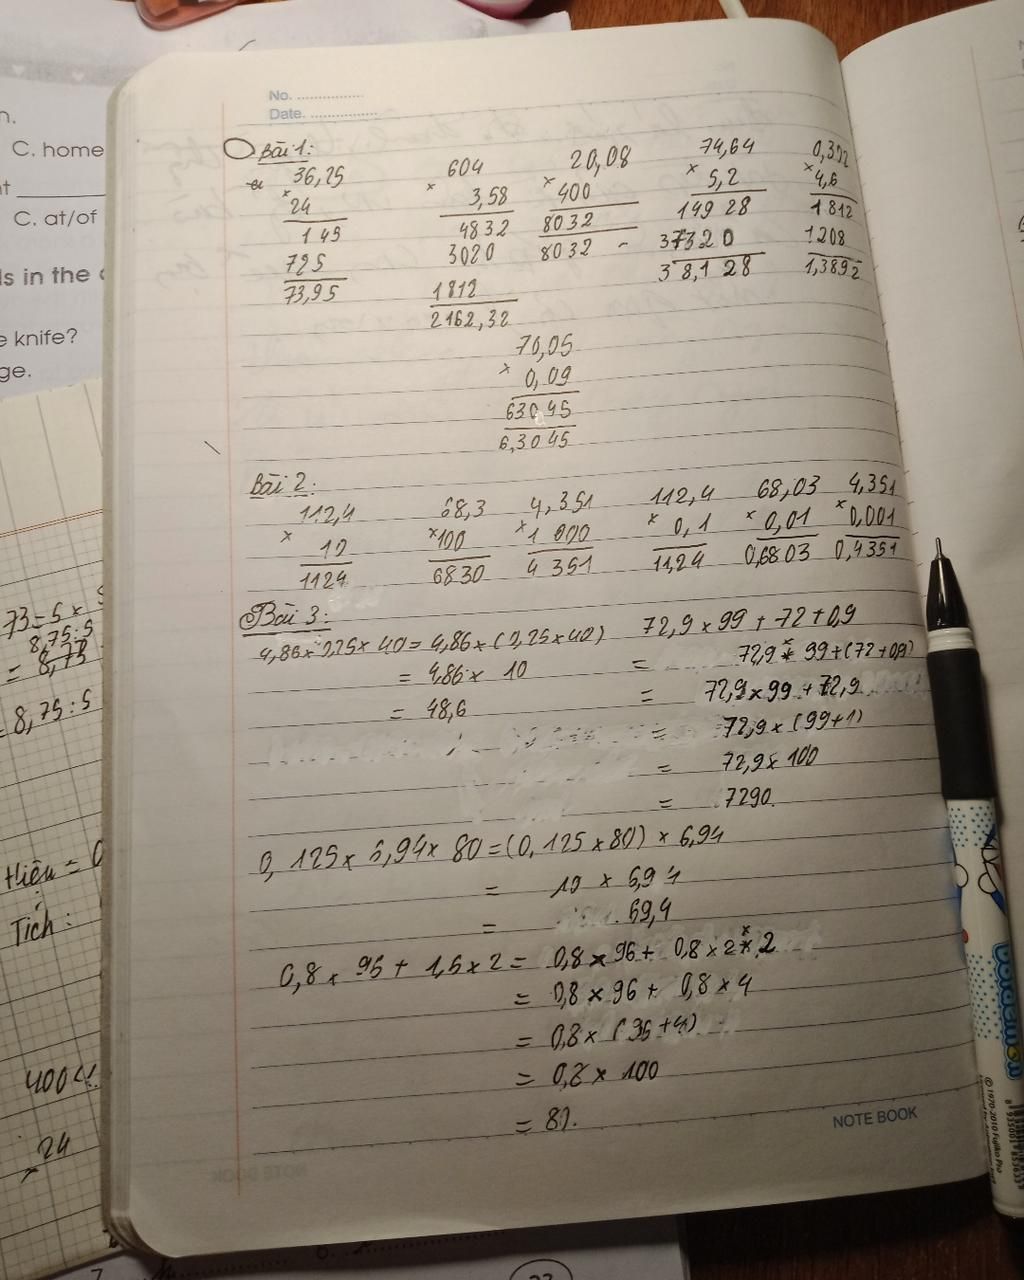 No. ................
Date. ................
Bài 1:
36,25 604 20,08 74,64 0,302
× 24 × 3,58 × 400 × 5,2 × 4,6
145 4832 8032 149 28 1812
725 3020 8032 37320 1208
73,95 1812 38,1 28 1,3892
2162,32
70,05
× 0,09
63045
6,3045
Bài 2:
112,4 68,3 4,351 112,4 68,03 4,351
× 10 ×100 ×1 000 × 0,1 × 0,01 ×0,001
1124 6830 4 351 11,24 0,6803 0,4351
Bài 3:
4,86 × 0,25 × 40 = 4,86 × (0,25 × 40) 72,9 × 99 + 72 + 0,9
= 4,86 × 10 = 72,9 × 99 + (72 + 0,9)
= 48,6 = 72,9 × 99 + 72,9
= 72,9 × (99+1)
= 72,9 × 100
= 7290
0,125 × 6,94 × 80 = (0,125 × 80) × 6,94
= 10 × 6,94
= 69,4
0,8 × 96 + 1,6 × 2 = 0,8 × 96 + 0,8 × 2 × 2
= 0,8 × 96 + 0,8 × 4
= 0,8 × (96 + 4)
= 0,8 × 100
= 80.
NOTE BOOK
n.
C. home
C. at/of
ls in the
e knife?
ge.
73 = 5 ×
8,75:5
= 8,75
= 8,75:5
Hiệu = 0
Tích:
400
× 24
Doraemon